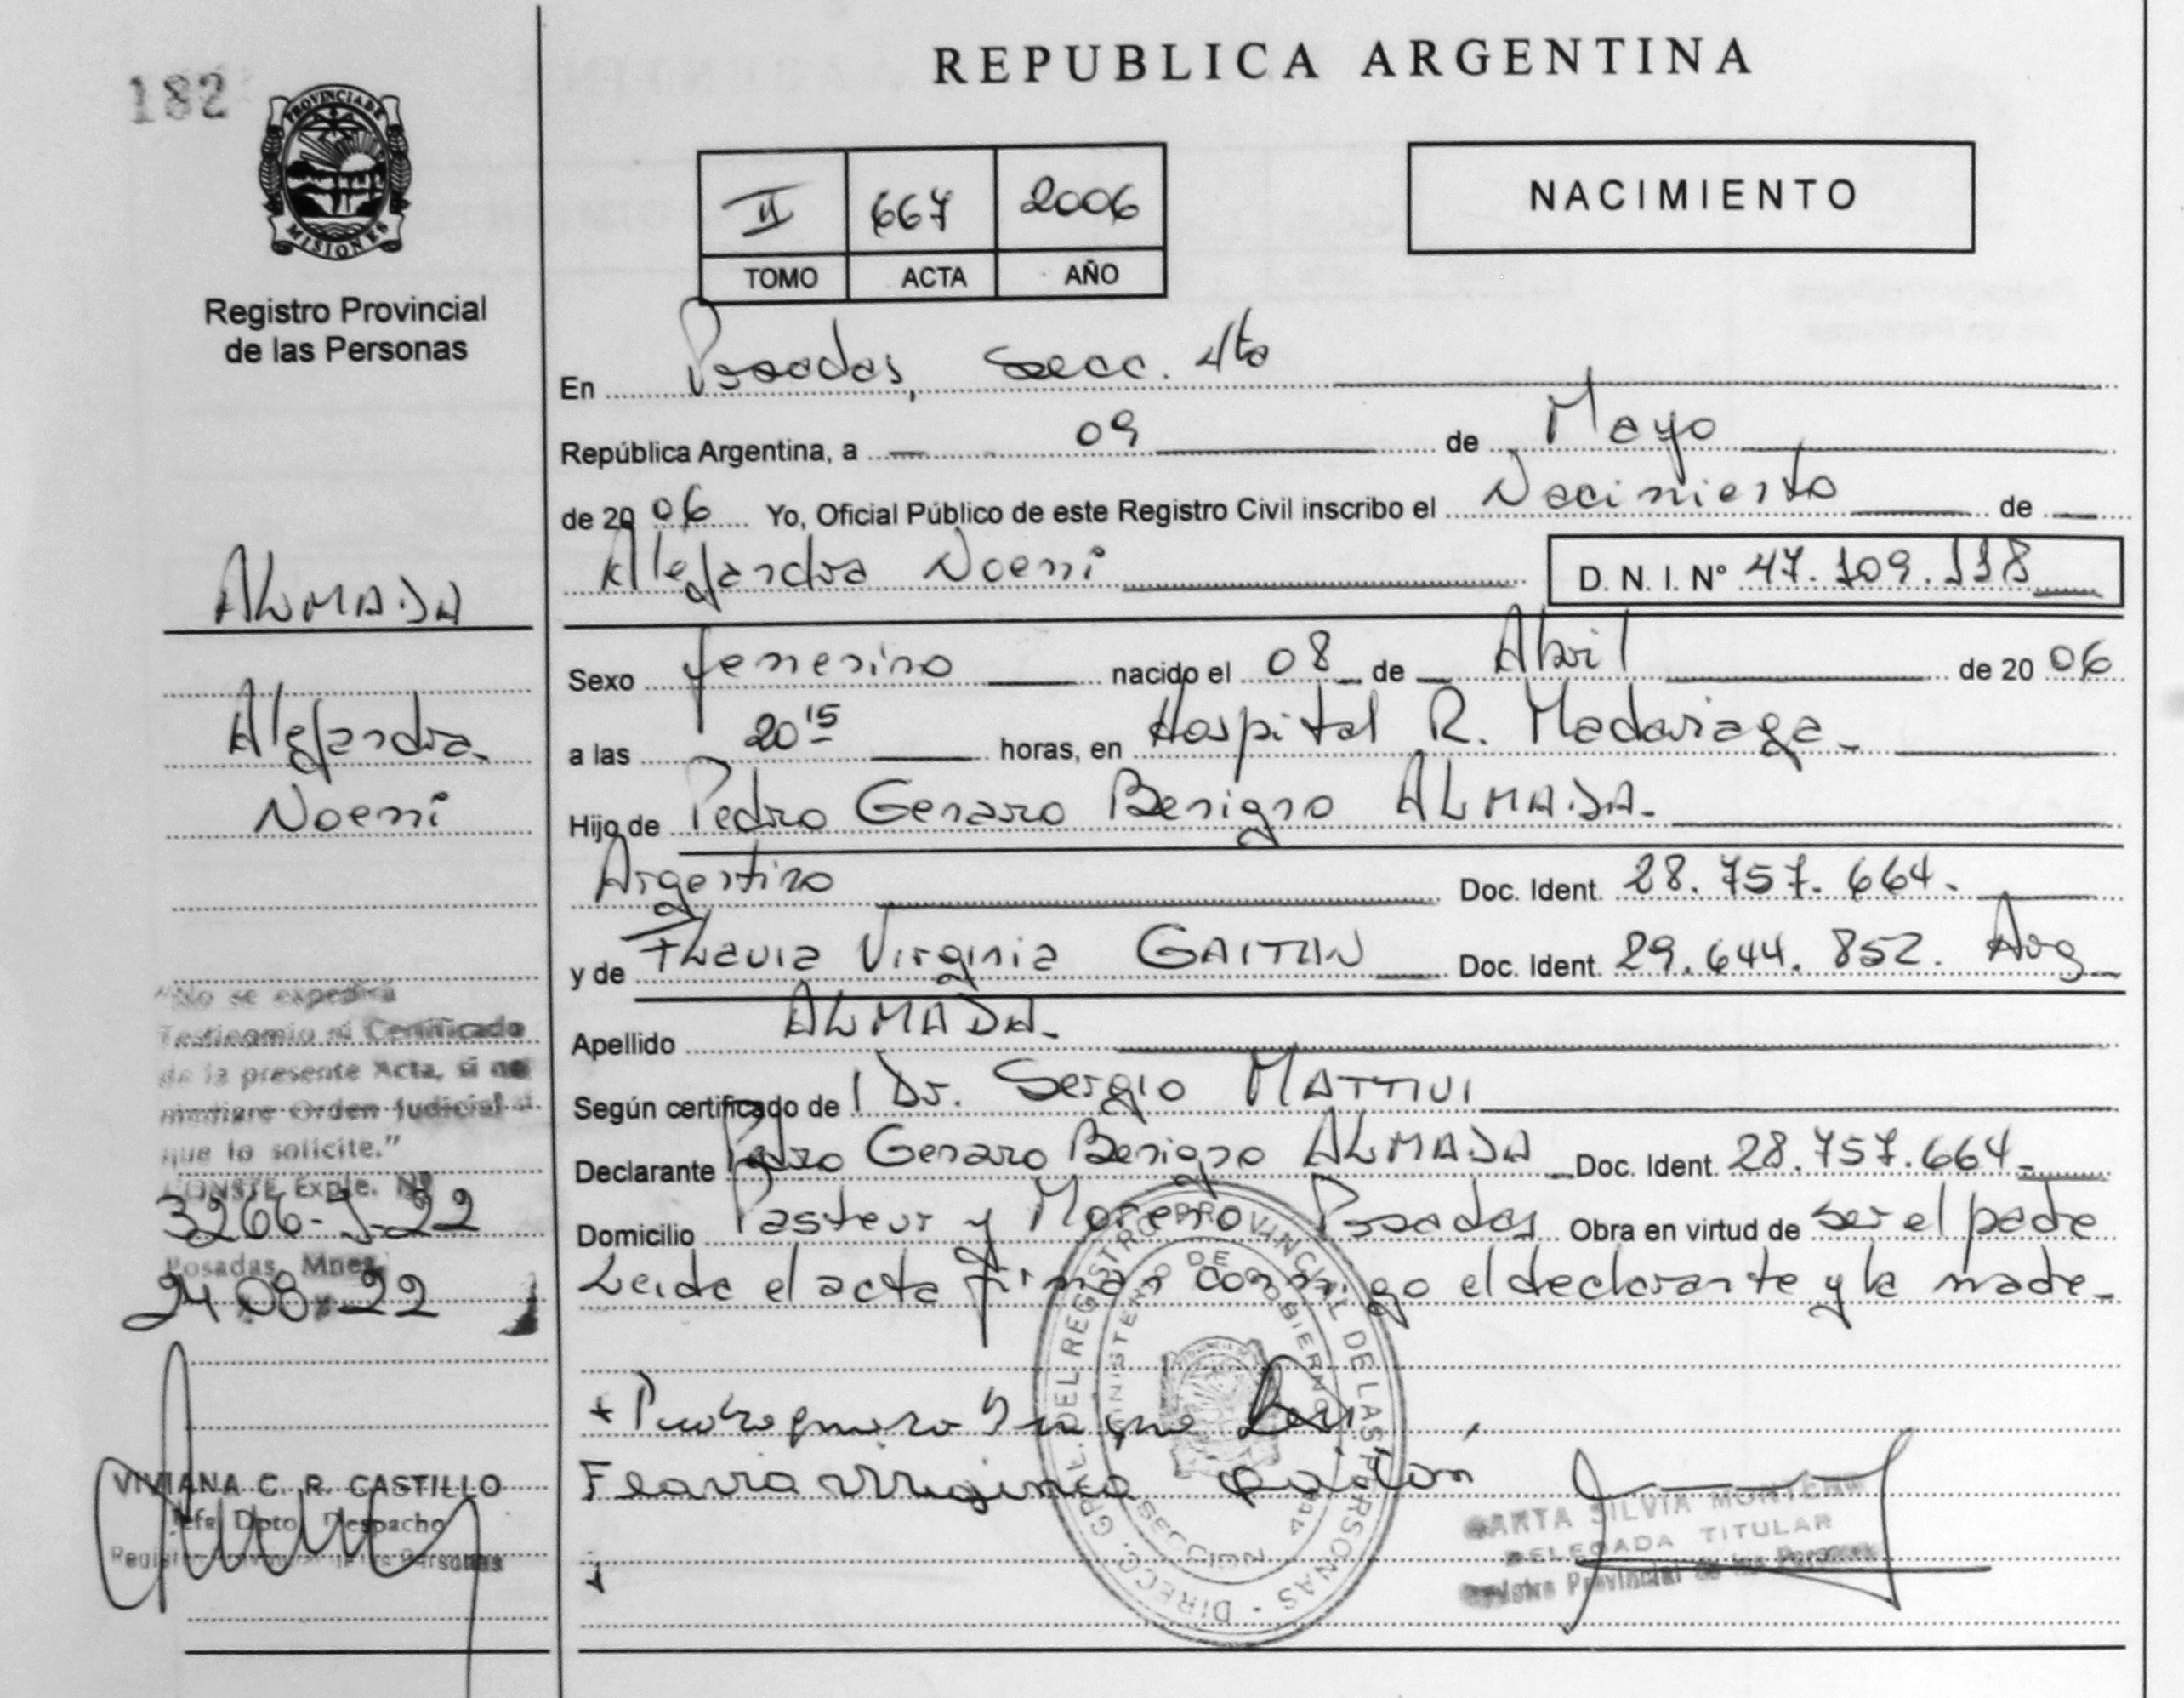 REPUBLICA ARGENTINA
182
PROVINCIA DE
MISIONES
Registro Provincial
de las Personas
II 667 2006
TOMO ACTA AÑO
NACIMIENTO
En Posadas, Secc. 4ta
República Argentina, a 09 de Mayo
de 2006 Yo, Oficial Público de este Registro Civil inscribo el Nacimiento de
Alejandra Noemi D. N. I. Nº 47.109.118
Sexo femenino nacido el 08 de Abril de 2006
a las 20 15 horas, en Hospital R. Madariaga
Hijo de Pedro Genaro Benigno ALMADA
Argentino Doc. Ident. 28.757.664.
y de Flavia Virginia GAITAN Doc. Ident. 29.644.852. Arg
Apellido ALMADA
Según certificado de l Dr. Sergio MATTIVI
Declarante Pedro Genaro Benigno ALMADA Doc. Ident. 28.757.664
Domicilio Pasteur y Moreno Posadas Obra en virtud de ser el padre
Leida el acta firman conmigo el declarante y la madre
Flavia Virginia Gaitan
DIRECC. GRAL. DEL REGISTRO PROVINCIAL DE LAS PERSONAS
MINISTERIO DE GOBIERNO
SECCION 4ta
MARTA SILVIA
DELEGADA TITULAR
Registro Provincial de las Personas
ALMADA
Alejandra
Noemi
"No se expedirá
Testimonio ni Certificado
de la presente Acta, si no
mediare Orden Judicial
que lo solicite."
CONSTE Expte. Nº
3266-J-22
Posadas, Mnes.
24 08 22
VIVIANA C. R. CASTILLO
Jefa Dpto. Despacho
Registro Provincial de las Personas